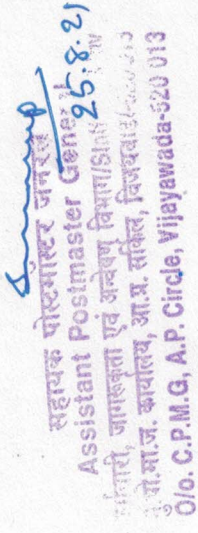 25.8.21
सहायक पोस्टमास्टर जनरल
Assistant Postmaster General
जागरूकता एवं अन्वेषण विभाग/Staff
कार्यालय, आ.प्र. सर्किल, विजयवाडा
O/o. C.P.M.G, A.P. Circle, Vijayawada-520 013